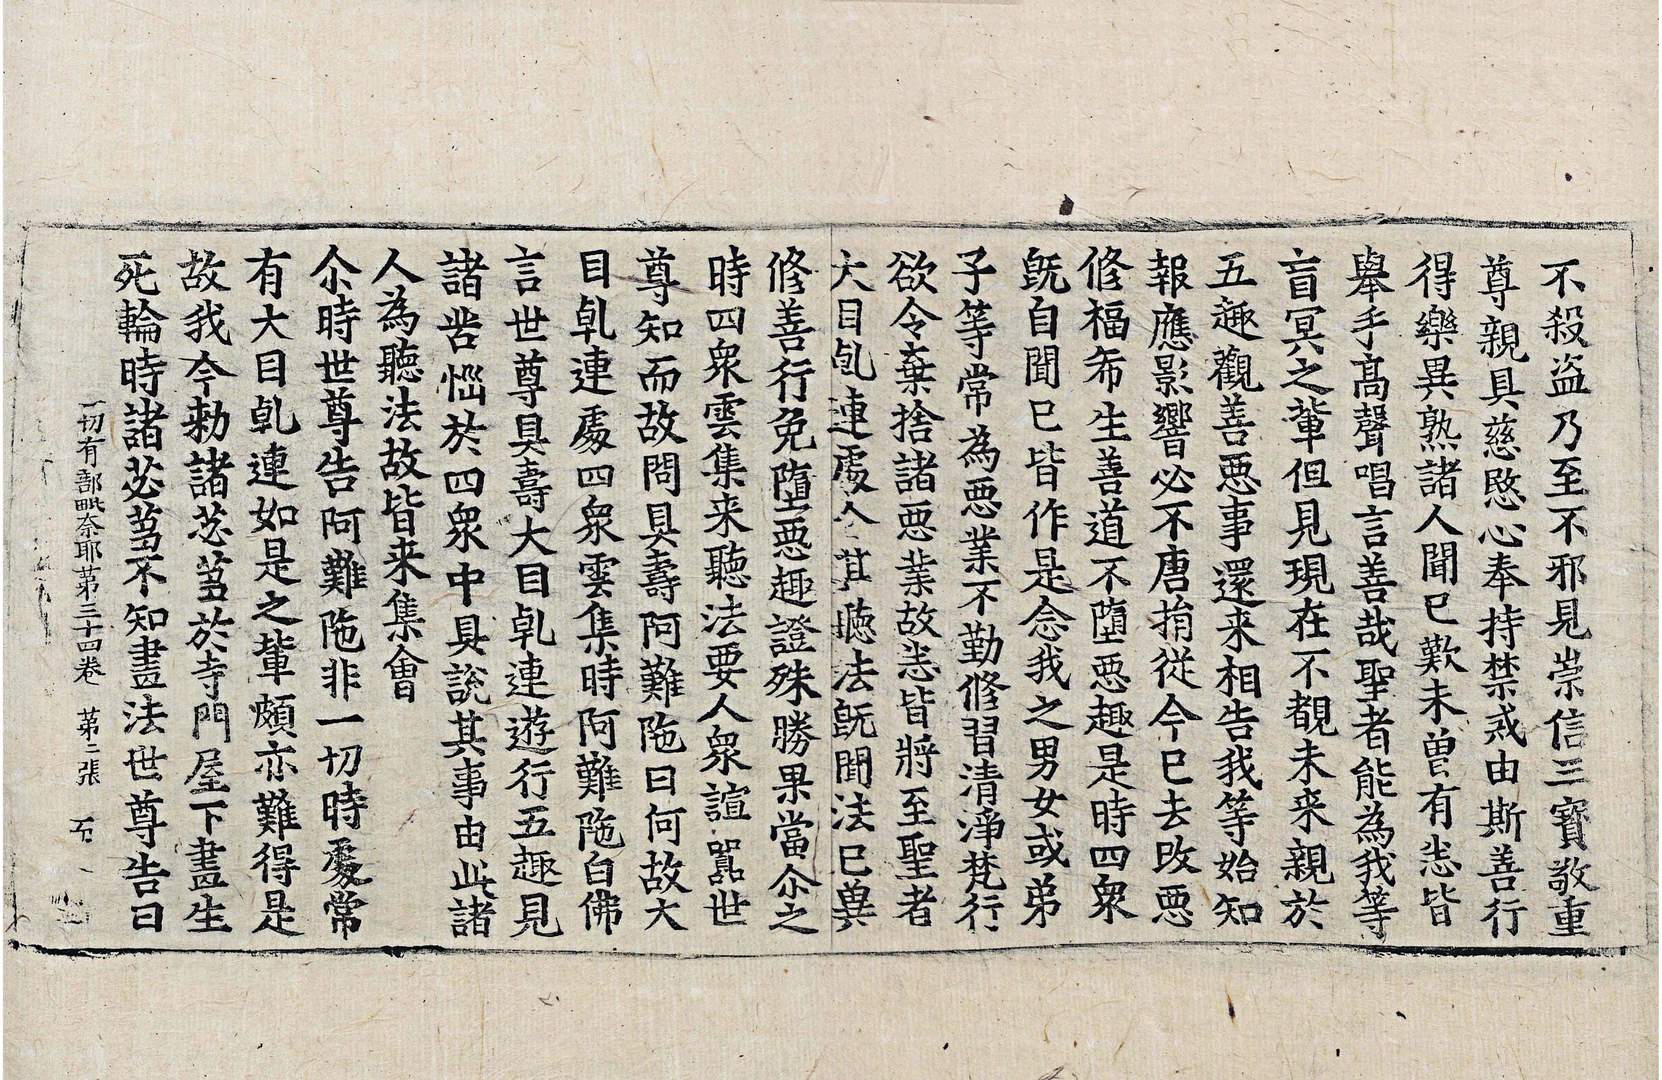 不殺盜乃至不邪見崇信三寳敬重
尊親具慈愍心奉持禁戒由斯善行
得樂異熟諸人聞已歎未曾有悉皆
舉手高聲唱言善哉聖者能為我等
盲冥之輩但見現在不覩未来親於
五趣觀善惡事還来相告我等始知
報應影響必不唐捐從今已去改惡
修福希生善道不墮惡趣是時四衆
旣自聞已皆作是念我之男女或弟
子等常為惡業不勤修習清淨梵行
欲令棄捨諸惡業故悉皆將至聖者
大目乹連處令其聽法旣聞法已兾
修善行免墮惡趣證殊勝果當尒之
時四衆雲集来聽法要人衆諠嚻世
尊知而故問具壽阿難陁曰何故大
目乹連處四衆雲集時阿難陁白佛
言世尊具壽大目乹連遊行五趣見
諸苦惱於四衆中具說其事由此諸
人為聽法故皆来集會
尒時世尊告阿難陁非一切時處常
有大目乹連如是之輩頗亦難得是
故我今勑諸苾芻於寺門屋下畫生
死輪時諸苾芻不知畫法世尊告曰
一切有部毗奈耶苐三十四卷 苐二張